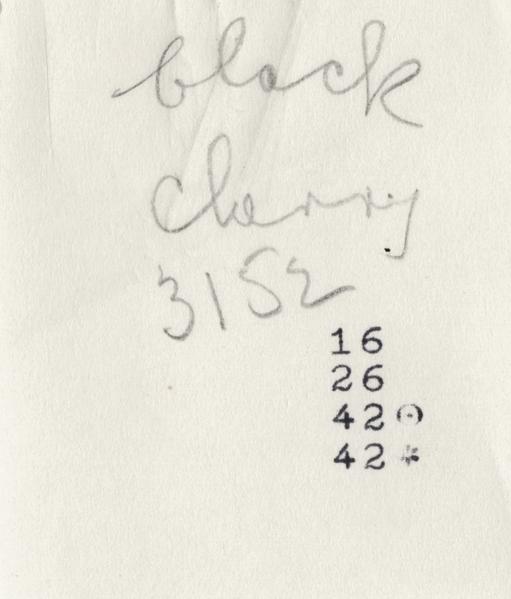 black
cherry
3152
16
26
42⊙
42*